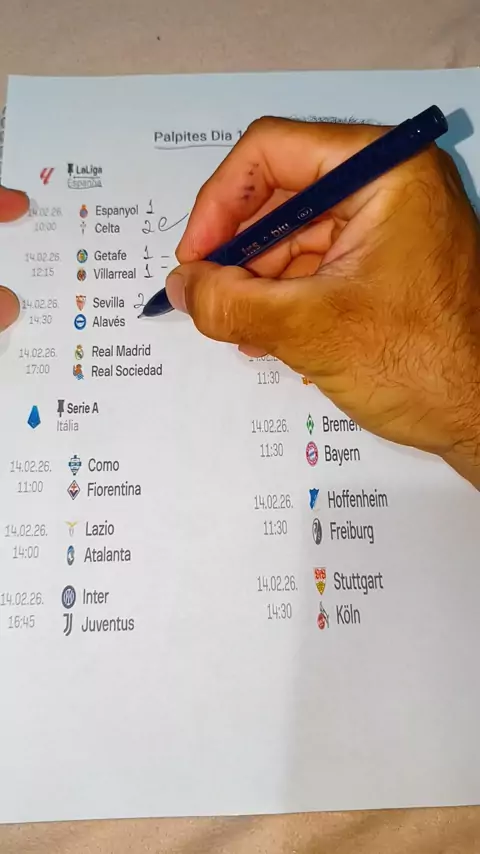 Palpites Dia 1
LaLiga
Espanha
14.02.26. Espanyol 1
10:00 Celta 2
14.02.26. Getafe 1 =
12:15 Villarreal 1 =
14.02.26. Sevilla 2
14:30 Alavés
14.02.26. Real Madrid
17:00 Real Sociedad
Serie A
Itália
14.02.26. Como
11:00 Fiorentina
14.02.26. Lazio
14:00 Atalanta
14.02.26. Inter
16:45 Juventus
11:30
14.02.26. Bremen
11:30 Bayern
14.02.26. Hoffenheim
11:30 Freiburg
14.02.26. Stuttgart
14:30 Köln